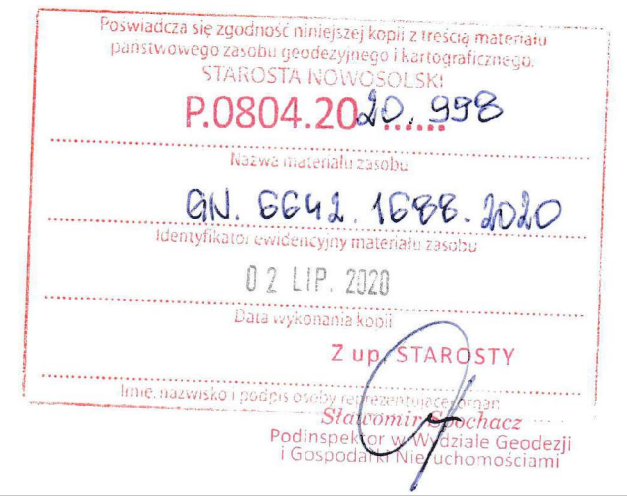 Poświadcza się zgodność niniejszej kopii z treścią materiału
państwowego zasobu geodezyjnego i kartograficznego.
STAROSTA NOWOSOLSKI
P.0804.2020.998
Nazwa materiału zasobu
GN. 6642. 1688. 2020
Identyfikator ewidencyjny materiału zasobu
02 LIP. 2020
Data wykonania kopii
Z up. STAROSTY
Imię, nazwisko i podpis osoby reprezentującej organ
Sławomir Spochacz
Podinspektor w Wydziale Geodezji
i Gospodarki Nieruchomościami